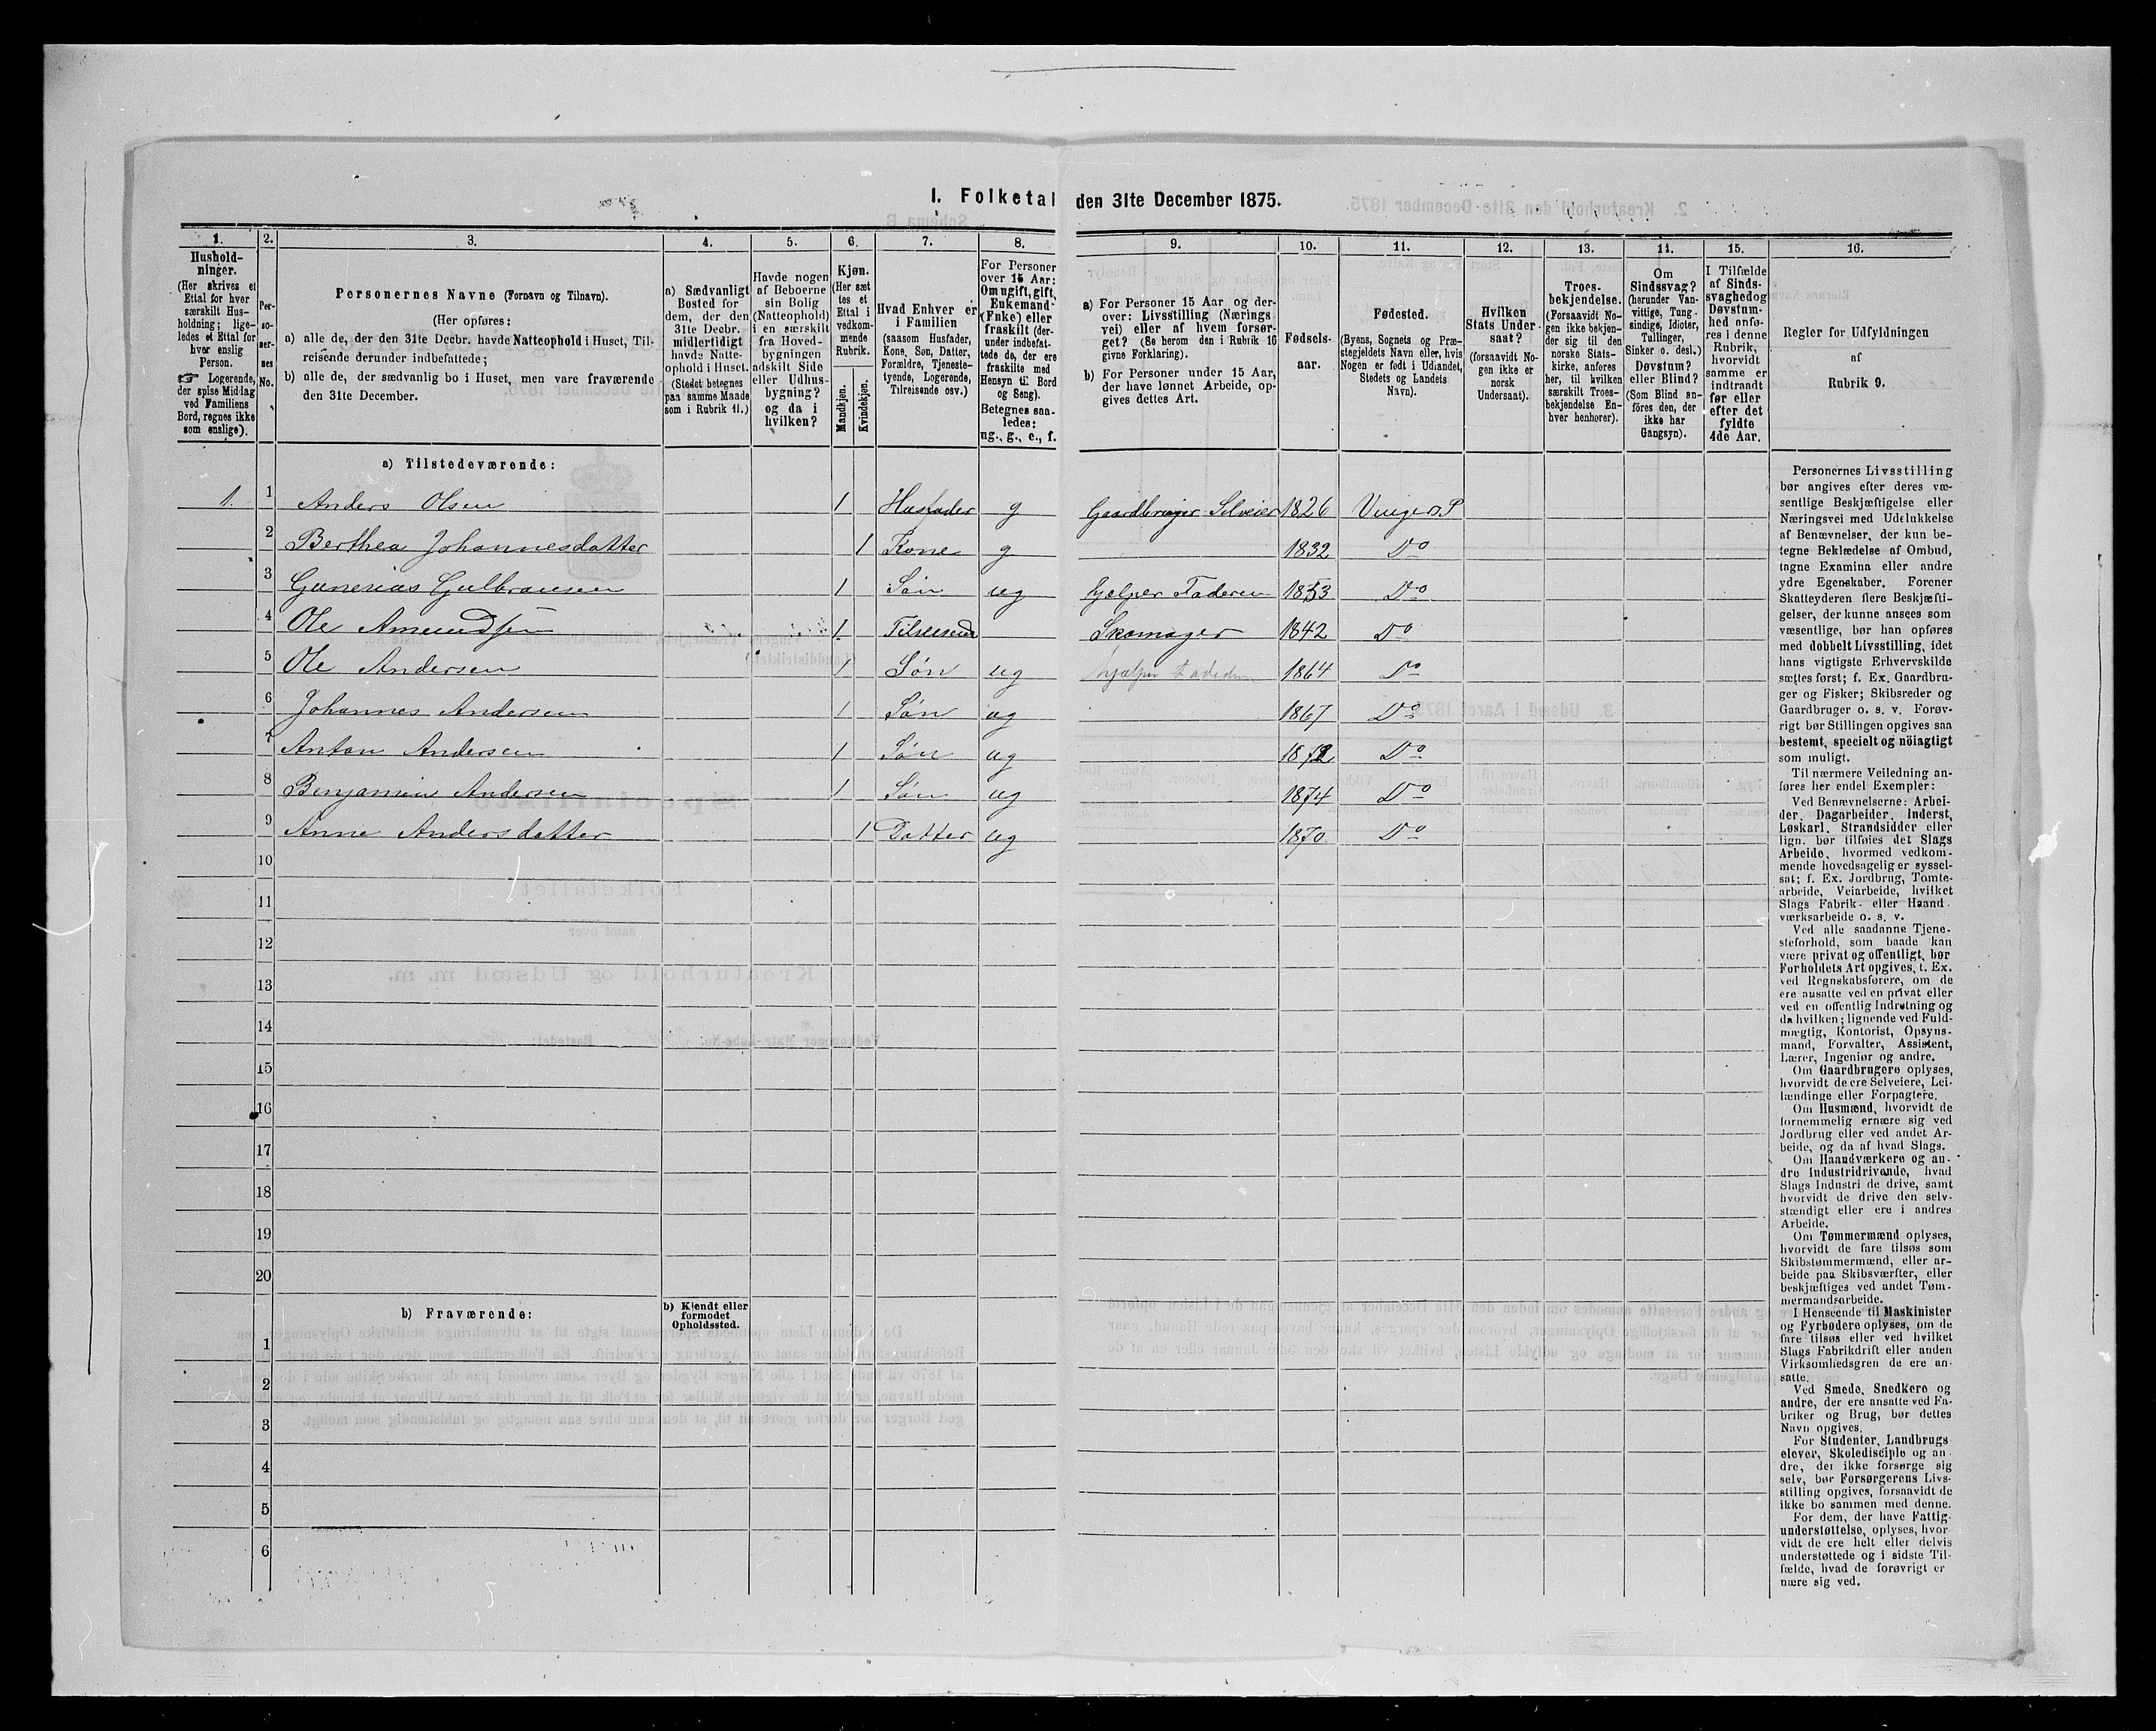 I. Folketal den 31te December 1875.
1. 2. 3. 4. 5. 6. 7. 8. 9. 10. 11. 12. 13. 14. 15. 16.
Hushold-
ninger.
(Her skrives et
Ettal for hver
særskilt Hus-
holdning; lige-
ledes et Ettal for
hver enslig
Person.
☞ Logerende,
der spise Middag
ved Familiens
Bord, regnes ikke
som enslige).
Per-
so-
ner-
nes
No.
Personernes Navne (Fornavn og Tilnavn).
(Her opføres:
a) alle de, der den 31te Decbr. havde Natteophold i Huset, Til-
reisende derunder indbefattede;
b) alle de, der sædvanlig bo i Huset, men vare fraværende
den 31te December.
a) Sædvanligt
Bosted for
dem, der den
31te Decbr.
midlertidigt
havde Natte-
ophold i Huset.
(Stedet betegnes
paa samme Maade
som i Rubrik 11.)
Havde nogen
af Beboerne
sin Bolig
(Natteophold)
i en særskilt
fra Hoved-
bygningen
adskilt Side
eller Udhus-
bygning?
og da i
hvilken?
Kjøn.
(Her sæt
tes et
Ettal i
vedkom-
mende
Rubrik.
Mandkjøn.
Kvindekjøn.
Hvad Enhver er
i Familien
(saasom Husfader,
Kone, Søn, Datter,
Forældre, Tjeneste-
tyende, Logerende,
Tilreisende osv.)
For Personer
over 15 Aar:
Om ugift, gift,
Enkemand-
(Enke) eller
fraskilt (der-
under indbefat-
tede de, der ere
fraskilte med
Hensyn til Bord
og Seng).
Betegnes saa-
ledes:
ug., g., e., f.
a) For Personer 15 Aar og der-
over: Livsstilling (Nærings
vei) eller af hvem forsør-
get? (Se herom den i Rubrik 16
givne Forklaring).
b) For Personer under 15 Aar,
der have lønnet Arbeide, op-
gives dettes Art.
Fødsels-
aar.
Fødested.
(Byens, Sognets og Præ-
stegjeldets Navn eller, hvis
Nogen er født i Udlandet,
Stedets og Landets
Navn).
Hvilken
Stats Under-
saat?
(forsaavidt No-
gen ikke er
norsk
Undersaat).
Troes-
bekjendelse.
(Forsaavidt No-
gen ikke bekjen-
der sig til den
norske Stats-
kirke, anføres
her, til hvilken
særskilt Troes-
bekjendelse En-
hver henhører).
Om
Sindssvag?
(herunder Van-
vittige, Tung-
sindige, Idioter,
Tullinger,
Sinker o. desl.)
Døvstum?
eller Blind?
(Som Blind an-
føres den, der
ikke har
Gangsyn).
I Tilfælde
af Sinds-
svaghed og
Døvstum-
hed anfø-
res i denne
Rubrik,
hvorvidt
samme er
indtraadt
før eller
efter det
fyldte
4de Aar.
Regler for Udfyldningen
af
Rubrik 9.
a) Tilstedeværende:
1. 1 Anders Olsen 1 Husfader g Gaardbruger Selveier 1826 Vinger P
2 Berthea Johannesdatter 1 Kone g 1832 Do
3 Gunerius Gulbransen 1 Søn ug hjelper Faderen 1853 Do
4 Ole Amundsen 1 Skomager 1842 Do
5 Ole Andersen 1 Søn ug hjelper 1864 Do
6 Johannes Andersen 1 Søn ug 1867 Do
7 Anton Andersen 1 Søn ug 1872 Do
8 Benjamin Andersen 1 Søn ug 1874 Do
9 Anne Andersdatter 1 Datter ug 1870. Do
10
11
12
13
14
15
16
17
18
19
20
b) Fraværende: b) Kjendt eller
formodet
Opholdssted.
1
2
3
4
5
6
Personernes Livsstilling
bør angives efter deres væ-
sentlige Beskjæftigelse eller
Næringsvei med Udelukkelse
af Benævnelser, der kun be-
tegne Beklædelse af Ombud,
tagne Examina eller andre
ydre Egenskaber. Forener
Skatteyderen flere Beskjæfti-
gelser, der kunne ansees som
væsentlige, bør han opføres
med dobbelt Livsstilling, idet
hans vigtigste Erhvervskilde
sættes først; f. Ex. Gaardbru-
ger og Fisker; Skibsreder og
Gaardbruger o. s. v. Forøv-
rigt bør Stillingen opgives saa
bestemt, specielt og nöiagtigt
som muligt.
Til nærmere Veiledning an-
føres her endel Exempler:
Ved Benævnelserne: Arbei-
der, Dagarbeider, Inderst,
Løskarl, Strandsidder eller
lign. bør tilføies det Slags
Arbeide, hvormed vedkom-
mende hovedsagelig er syssel-
sat; f. Ex. Jordbrug, Tomte-
arbeide, Veiarbeide, hvilket
Slags Fabrik- eller Haand-
værksarbeide o. s. v.
Ved alle saadanne Tjene-
steforhold, som baade kan
være privat og offentligt, bør
Forholdets Art opgives, t. Ex.
ved Regnskabsførere, om de
ere ansatte ved en privat eller
ved en offentlig Indretning og
da hvilken; lignende ved Fuld-
mægtig, Kontorist, Opsyns-
mand, Forvalter, Assistent,
Lærer, Ingeniør og andre.
Om Gaardbrugere oplyses,
hvorvidt de ere Selveiere, Lei-
lændinge eller Forpagtere.
Om Husmænd, hvorvidt de
fornemmelig ernære sig ved
Jordbrug eller ved andet Ar-
beide, og da af hvad Slags.
Om Haandværkere og an-
dre Industridrivende, hvad
Slags Industri de drive, samt
hvorvidt de drive den selv-
stændigt eller ere i andres
Arbeide.
Om Tømmermænd oplyses,
hvorvidt de fare tilsøs som
Skibstømmermænd, eller ar-
beide paa Skibsværfter, eller
beskjæftiges ved andet Tøm-
mermandsarbeide.
I Henseende til Maskinister
og Fyrbødere oplyses, om de
fare tilsøs eller ved hvilket
Slags Fabrikdrift eller anden
Virksomhedsgren de ere an-
satte.
Ved Smede, Snedkere og
andre, der ere ansatte ved Fa-
briker og Brug, bør dettes
Navn opgives.
For Studenter, Landbrugs-
elever, Skoledisciple og an-
dre, der ikke forsørge sig
selv, bør Forsørgerens Livs-
stilling opgives, forsaavidt de
ikke bo sammen med denne.
For dem, der have Fattig-
understøttelse, oplyses, hvor-
vidt de ere helt eller delvis
understøttede og i sidste Til-
fælde, hvad de forøvrigt er
nære sig ved.